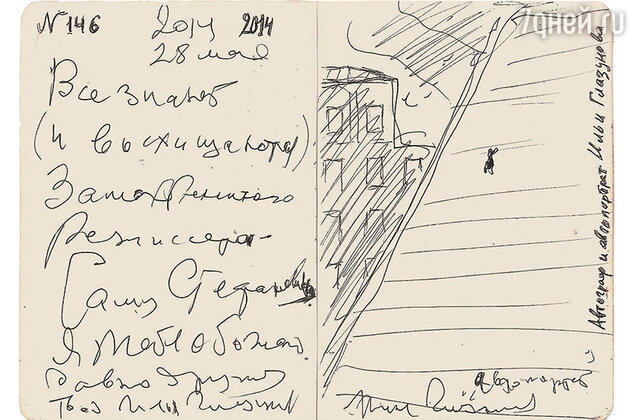 N 146 2014 2014
28 мая
Все знают
(и восхищаются)
Знаменитого
Режиссера
Сашу Стефановича
Я тебя обожаю
Давно дружим
Твой Илья Глазунов
7дней.ru
Автограф и автопортрет Ильи Глазунова
Автопортрет
Илья Глазунов